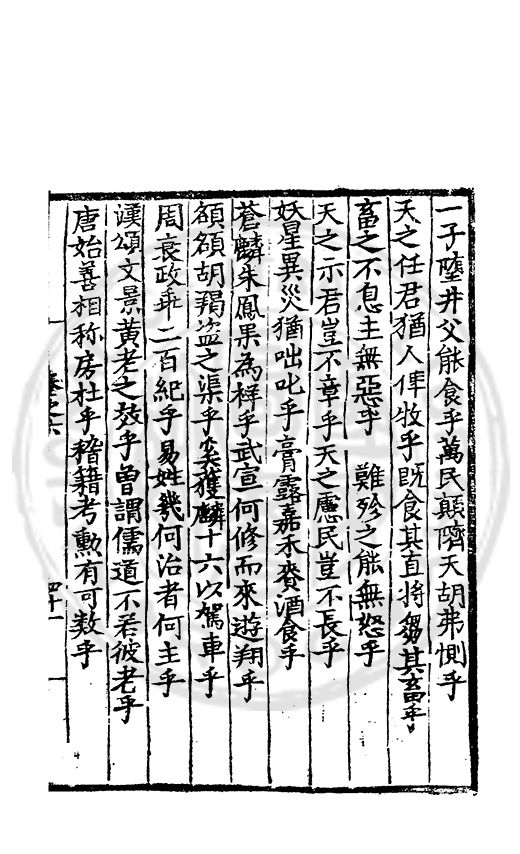 一子墮井父能食乎萬民顛隮天胡弗惻乎
天之任君猶人俾牧乎既食其直將芻其畜乎
畜之不息主無惡乎難殄之能無怒乎
天之示君豈不章乎天之慮民豈不長乎
妖星異災猶咄叱乎膏露嘉禾賚酒食乎
蒼麟朱鳳果為祥乎武宣何修而來遊翔乎
頟頟胡羯盜之渠乎奚獲麟十六以駕車乎
周衰政乖二百紀乎易姓幾何治者何主乎
漢頌文景黃老之效乎曾謂儒道不若彼老乎
唐始善相称房杜乎稽籍考勳有可数乎
卷之六
四十一